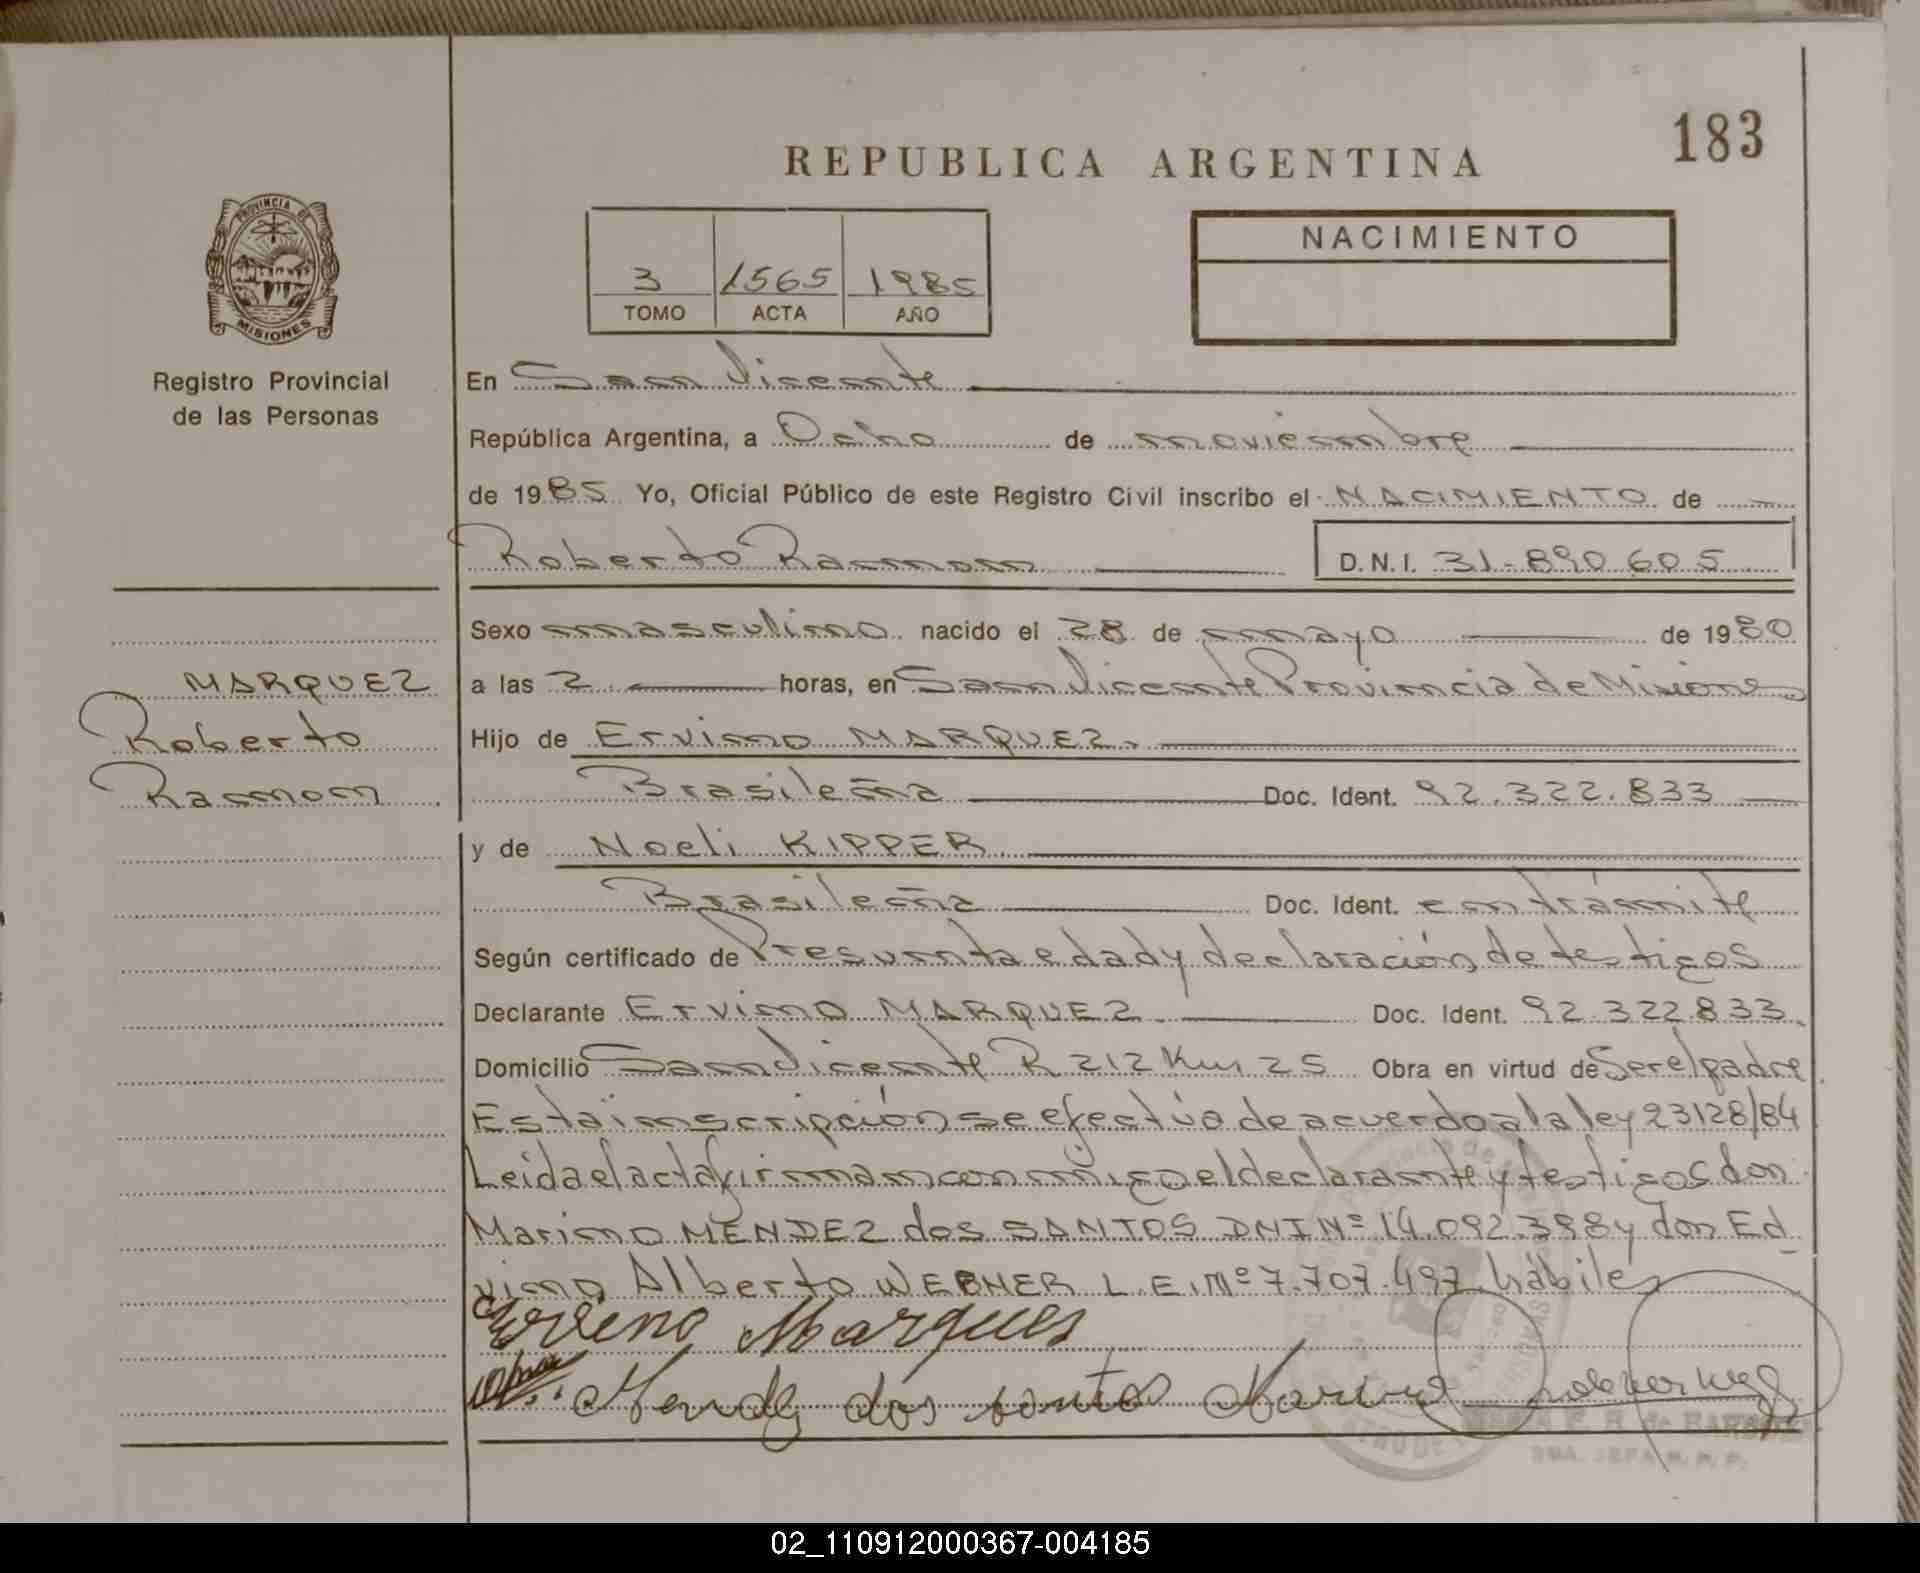 183
REPUBLICA ARGENTINA
PROVINCIA DE
MISIONES
Registro Provincial
de las Personas
3 1565 1985
TOMO ACTA AÑO
NACIMIENTO
En San Vicente
República Argentina, a Ocho de noviembre
de 1985 Yo, Oficial Público de este Registro Civil inscribo el NACIMIENTO de
Roberto Ramon D.N.I. 31-890 605
Sexo masculino nacido el 28 de mayo de 1980
MARQUEZ
Roberto
Ramon
a las 2 horas, en San Vicente Provincia de Misiones
Hijo de Ervino MARQUEZ.
Brasileña Doc. Ident. 92.322.833
y de Noeli KIPPER
Brasileña Doc. Ident. en trámite
Según certificado de Presunta edad y declaración de testigos
Declarante Ervino MARQUEZ. Doc. Ident. 92.322.833.
Domicilio San Vicente R 212 Km 25 Obra en virtud de Ser el padre
Esta inscripción se efectúa de acuerdo a la ley 23128/84
Leida el acta firman conmigo el declarante y testigos don
Marino MENDEZ dos SANTOS DNI Nº 14.092.398 y don Ed
vino Alberto WEBNER L.E. Nº 7.707.497 hábiles
Erveno Marques
Mendez dos santos Marino
02_110912000367-004185